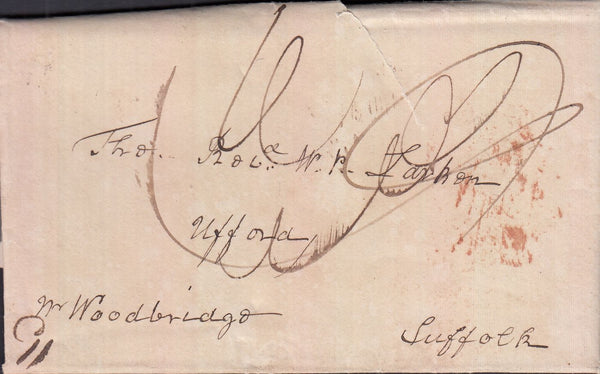 The Revd. W. P. Larken
Ufford
Nr Woodbridge
Suffolk